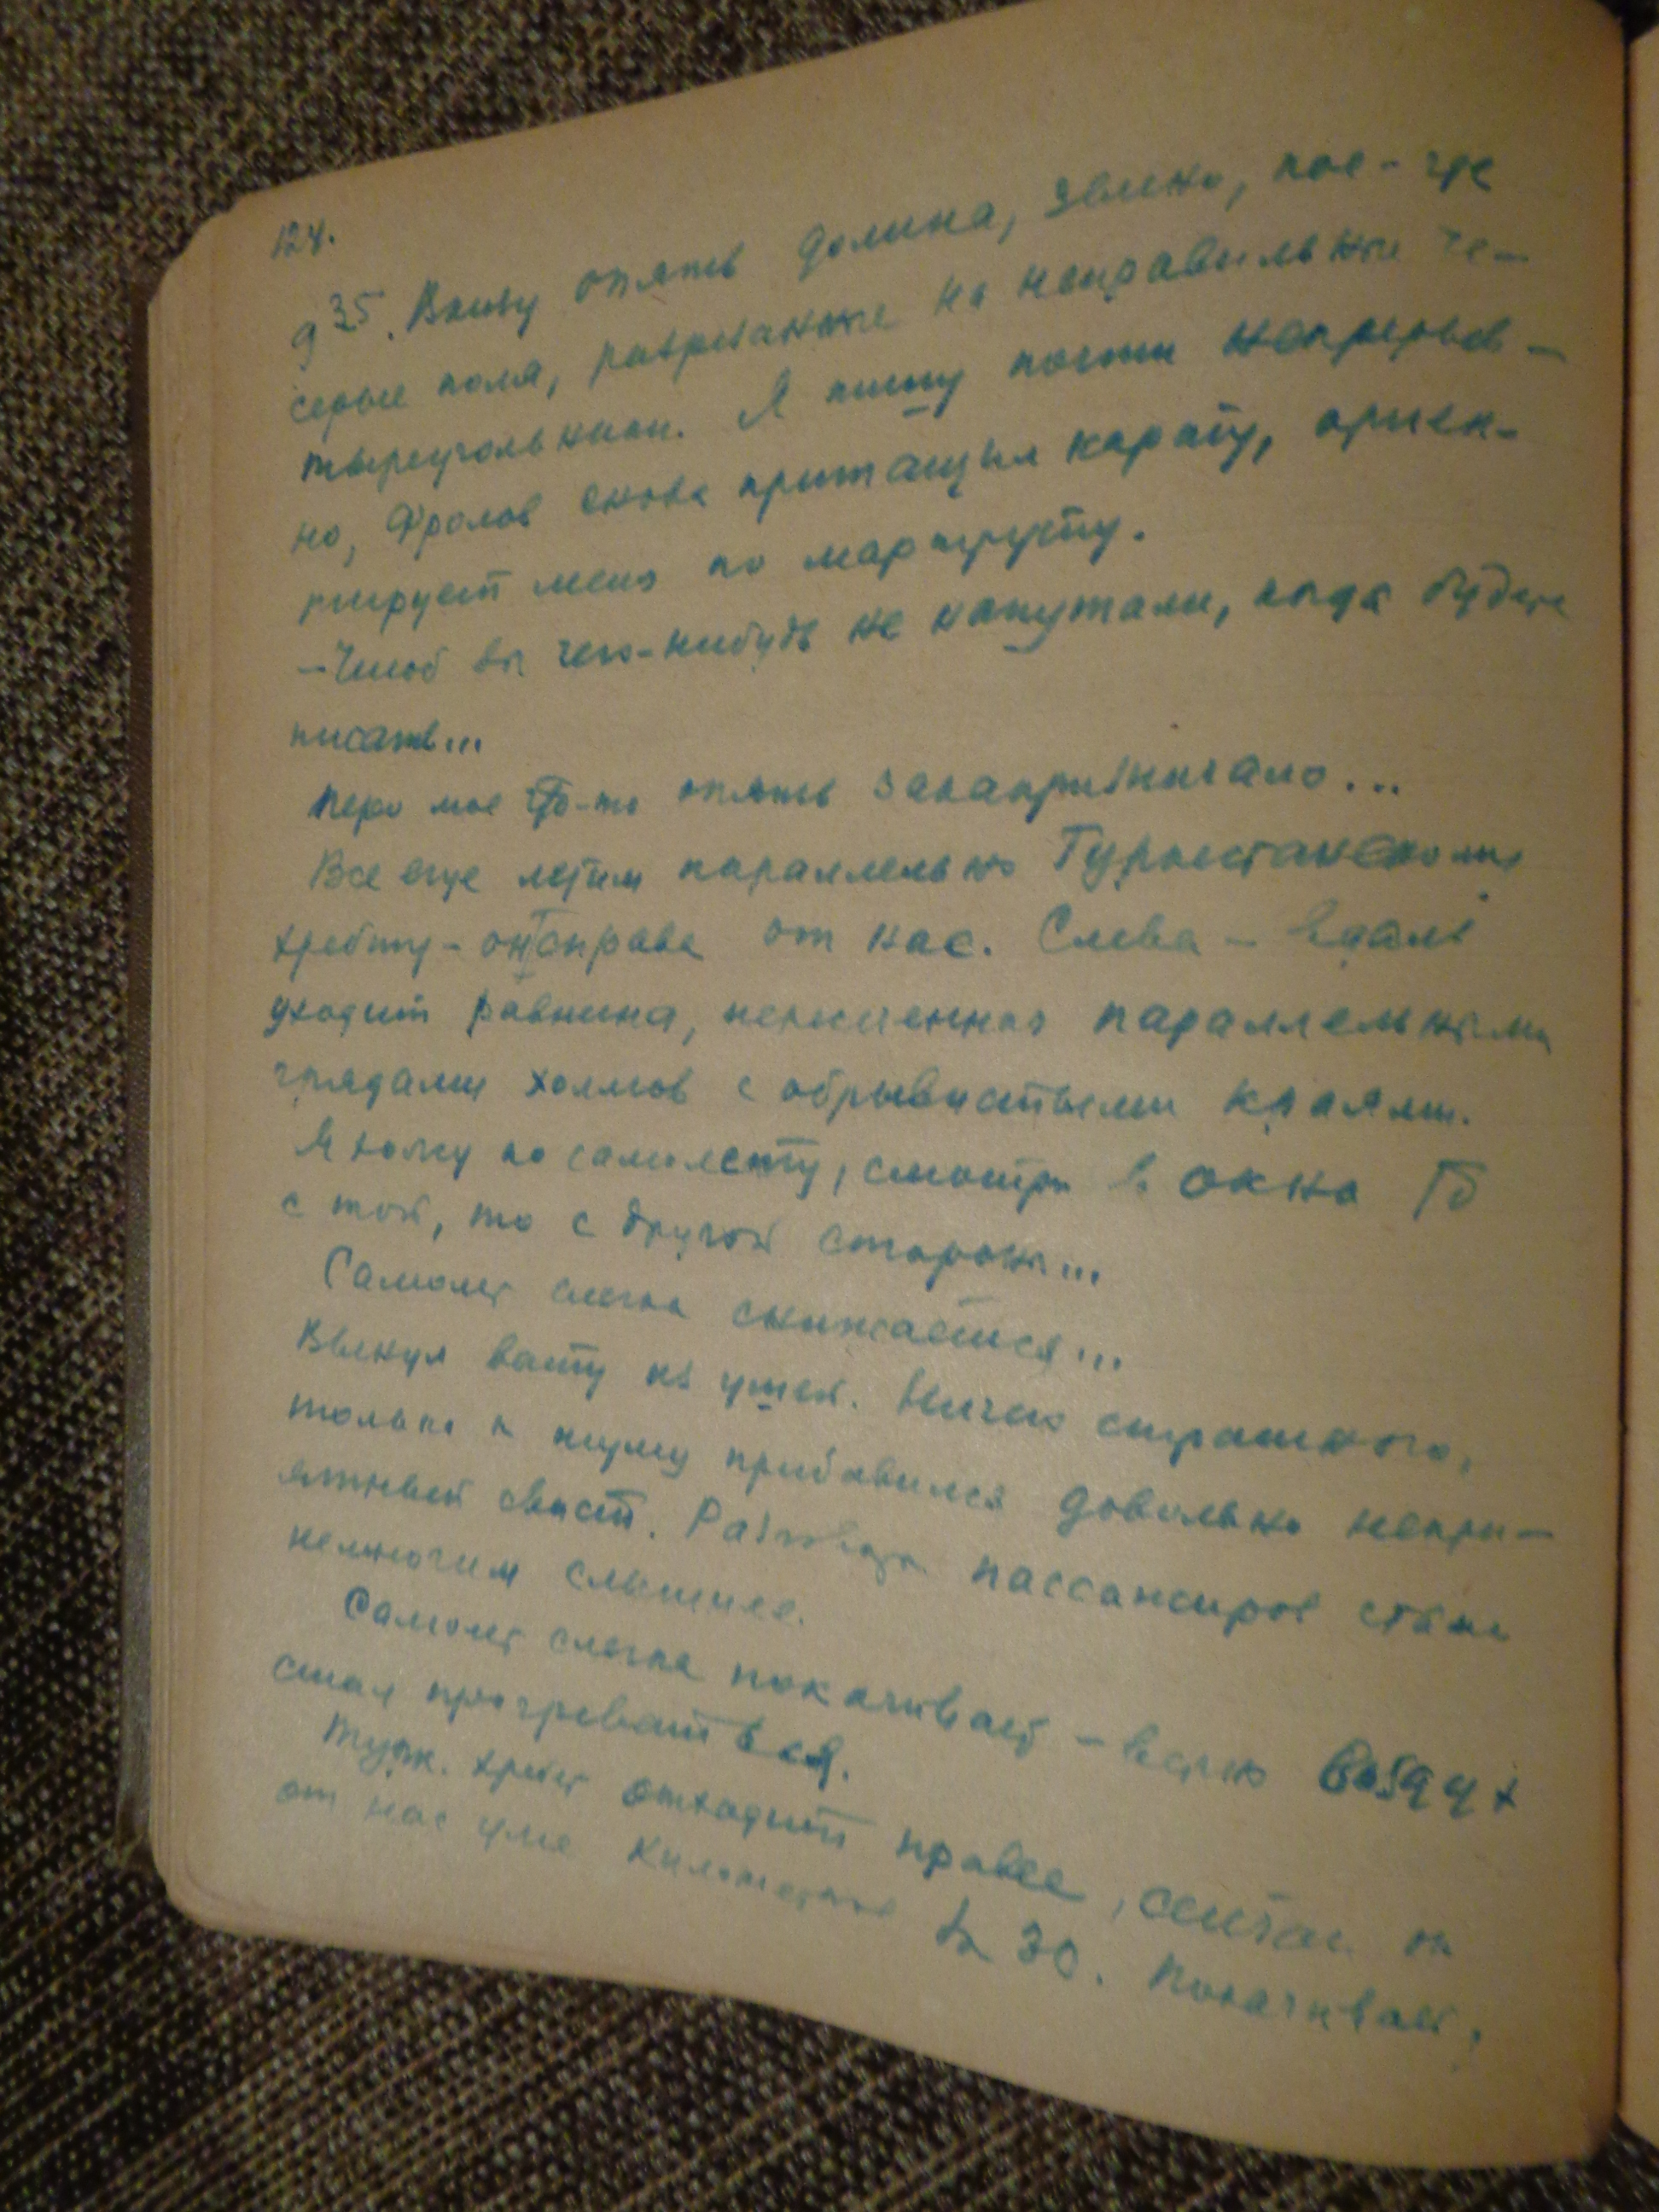 124.
9 35. Внизу опять долина, зелено, кое-где
серые поля, разрезанные на неправильные че-
тыреугольники. Я пишу почти непрерыв-
но, Фролов снова притащил карту, ориен-
тирует меня по маршруту.
- Чтоб вы чего-нибудь не напутали, когда будете
писать...
Перо мое что-то опять закапризничало...
Все еще летим параллельно Туркестанскому
хребту - он справа от нас. Слева - вдаль
уходит равнина, пересеченная параллельными
грядами холмов с обрывистыми краями.
Я хожу по самолету, смотрю в окна то
с той, то с другой стороны...
Самолет слегка снижается...
Вынул вату из ушей. Ничего страшного,
только к шуму прибавился довольно непри-
ятный свист. Разговоры пассажиров стали
немногим слышнее.
Самолет слегка покачивает - верно воздух
стал прогреваться.
Турк. хребет отходит правее, сейчас он
от нас уже километрах в 30. Покачивает,